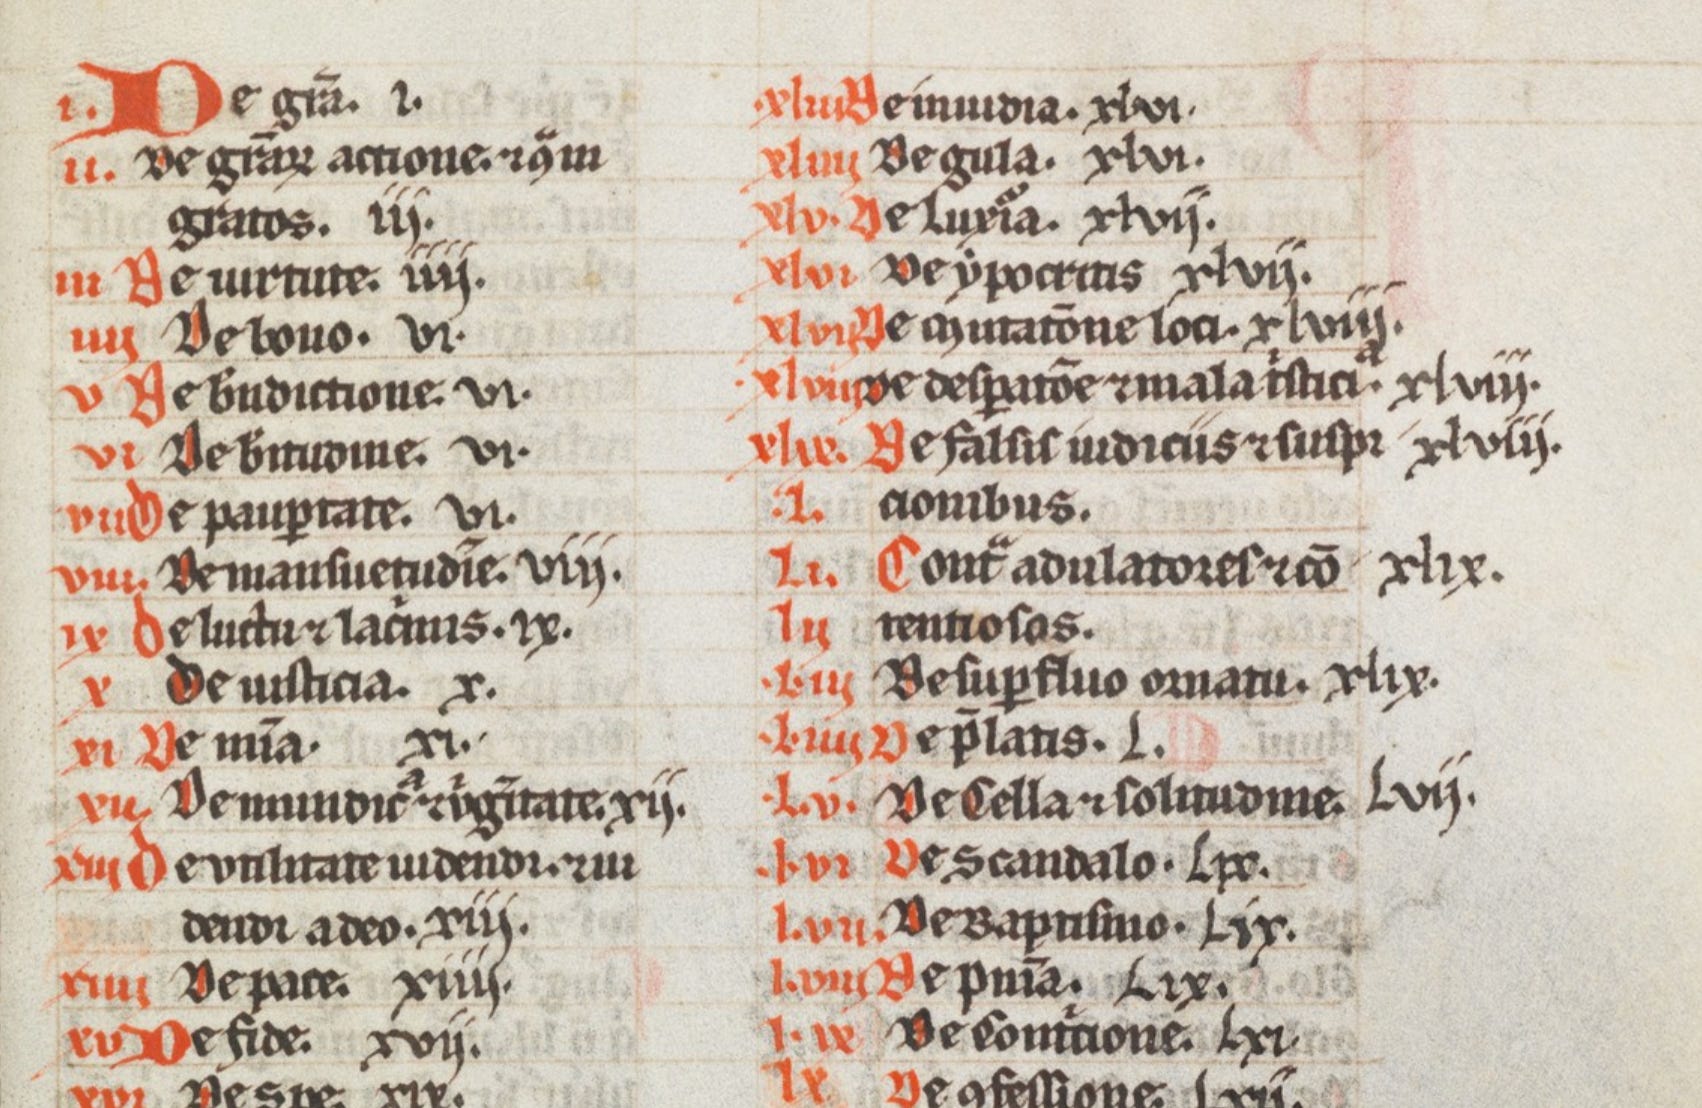 i. De gr̄a. i.
ii. De gr̄aꝝ actione. ⁊ ꝯͣ in
gratos. iij.
iii De uirtute. iiij.
iiij De bono. vi.
v De bn̄dictione. vi.
vi De btitudine. vi.
vii De pauꝑtate. vi.
viii. De mansuetudīe. viij.
ix De luctu ⁊ lac̄mis. ix.
x De iusticia. x.
xi De mīa. xi.
xii. De mundicͣ ⁊ uͥgītate. xij.
xiii De vtilitate uidendi. ⁊ ui
dendi a deo. xiij.
xiiij De pace. xiiij.
xv De fide. xvij.
xvi De spe. xix.
xliii De inuidia. xlvi.
xliiij De gula. xlvi.
xlv. De luxͦīa. xlvij.
xlvi De ẏpocritis xlvij.
xlvii De mutatōne loci. xlviij.
xlviii De desꝑatōe ⁊ mala tͥsticiͣ. xlviij.
xlix. De falsis iudiciis ⁊ suspi xlviij.
.l. cionibus.
Li. Contͣ adulatores ⁊ cō xlix.
lij tentiosos.
.liij De suꝑfluo ornatu. xlix.
.liiij De p̄latis. L.
.Lv. De Cella ⁊ solitudine. Lvij.
.lvi De Scandalo. Lix.
l.vii. De Baptismo. Lix.
l.viii De pnīa. Lix.
l.ix De Contͥcione. Lxi.
lx De ꝯfessione. Lxij.